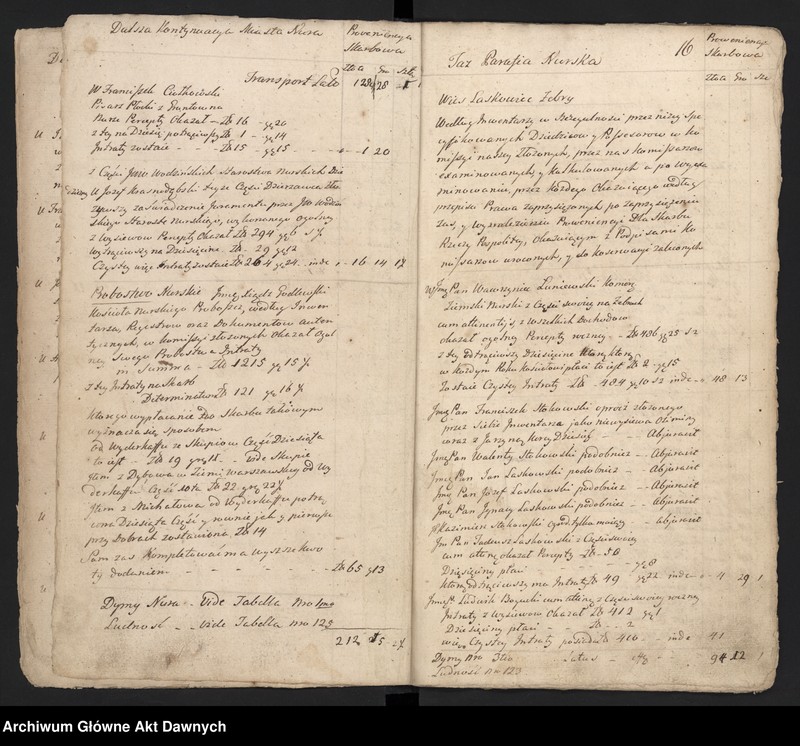 Dalsza Kontynuacya Miasta Nura
Prowenienya
Skarbowa
Złota Gro Szel
Transport Lat. 128 28 1
W Franciszek Cutkowski
Pisarz Płocki z Gruntowna
Bene Percepty Okazał - Zł 16 - gr 20
z tey na Dziesię potrąciwszy Zł 1 - gr 14
Intraty zostaie - - Zł 15 - gr 15 - - - - 1 20
z Części Jmw Wodzińskich Starostwa Nurskich Dzie
U Józef Krasnodębski tęże Części Dzierzawca zło
żywszy zaświadczenie Juramentu przez JW Wodziń
skiego Starostę Nurskiego, wykonanego ogolney
z Wysiewow Percepty Okazał Zł 294 gr 6
Wytrąciwszy na Dziesięcinę Zł 29 gr 12
Czystey więc Intraty zostaie Zł 264 gr 24 - inde - 16 14
Probostwo Nurskie Jmę Xiądz Godlewski
Kościoła Nurskiego Proboszcz, według Inwen
tarza, Regestrow oraz Dokumentow auten
tycznych, w Komissyi złożonych Okazał Ogol
ney Swego Probostwa Intraty
in Summa - Zł 1215 gr 15
z tey Intraty na Skarb
Determinatur Zł 121 gr 16
Którego wypłacanie do Skarbu takowym
wyznacza się sposobem
od Wyderkaffu ze Skupiow Część Dziesiąta
to iest - Zł 19 gr 15 - Vide Skupie
Item z Dybowa w Ziemi Warszawskiey od Wy
derkaffu Część 10ta Zł 22 gr 22
Item z Michałowa od Wyderkaffu potrą
cona Dziesiąta Część y rownie jak y pierwsze
przy Dobrach zostawiona Zł 14
Sam zaś Kompletować ma wyszszekwo
ty dodaniem - - - - - Zł 65 gr 13
Dymy Nura - Vide Tabella Nro 1mo
Ludność - - Vide Tabella nro 123
212 15
16
Taż Parafia Nurska
Prowenienya
Skarbowa
Złota Gro Sze
Wieś Laskowiec Żebry
Według Inwentarzy w Szczegulności przez niżey Spe
cyfikowanych Dziedzicow y Possesorow w Ko
missyi naszey złożonych, przez nas Komissarzow
examinowanych y kalkulowanych a po wyexa
minowaniu, przez Każdego Okazuiącego według
przepisu Prawa zaprzysiężonych po zaprzysiężeniu
zaś, y wynalezieniu Proweniencyi Dla Skarbu
Rzeczy Pospolitey, Okazuiącym z Podpisami Ko
missarzow wroconych, y do konserwacyi zaleconych
W Jmę Pan Wawrzyniec Łuniewski Komor
Ziemski Nurski z Części swoiey na Żebrach
cum attinentiis, z wszelkich Dochodow
okazał ogolney Percepty roczney - Zł 486 gr 25 sz 2
z tey odtrąciwszy Dziesięcinę Którey
w Każdym Roku Kościołowi płaci to iest Zł 2 - gr 15
Zostaie Czystey Intraty - Zł 484 gr 10 sz 2 inde - 48 13
Jmę Pan Franciszek Stokowski oprocz złożonego
przez Siebie Inwentarza
wraz z - - Abjuravit
Jmę Pan Walenty Stokowski podobniez - Abjuravit
Jmę Pan Jan Laskowski podobniez - Abjuravit
Jmę Pan Józef Laskowski podobniez - Abjuravit
Jmę Pan Ignacy Laskowski podobniez - Abjuravit
Kazimierz Stokowski ogrod tylko maiący - abjuravit
Jm Pan Tadeusz Laskowski z Części swoiey
cum attinę okazał Percepty - Zł 50
Dziesięciny płaci - - - gr 8
którą odtrąciwszy ma Intraty Zł 49 gr 22 inde - 4 29 1
Jmę P. Ludwik Boguski cum attinę z Części swoiey roczney
Intraty z Wysiewow Okazał Zł 412 gr 1
Dziesięciny płaci - - Zł - 2
więc Czystey Intraty posiada Zł 410 - - inde 41
Dymy Nro - Latus - - 94 12 1
Ludność no 123
Archiwum Główne Akt Dawnych